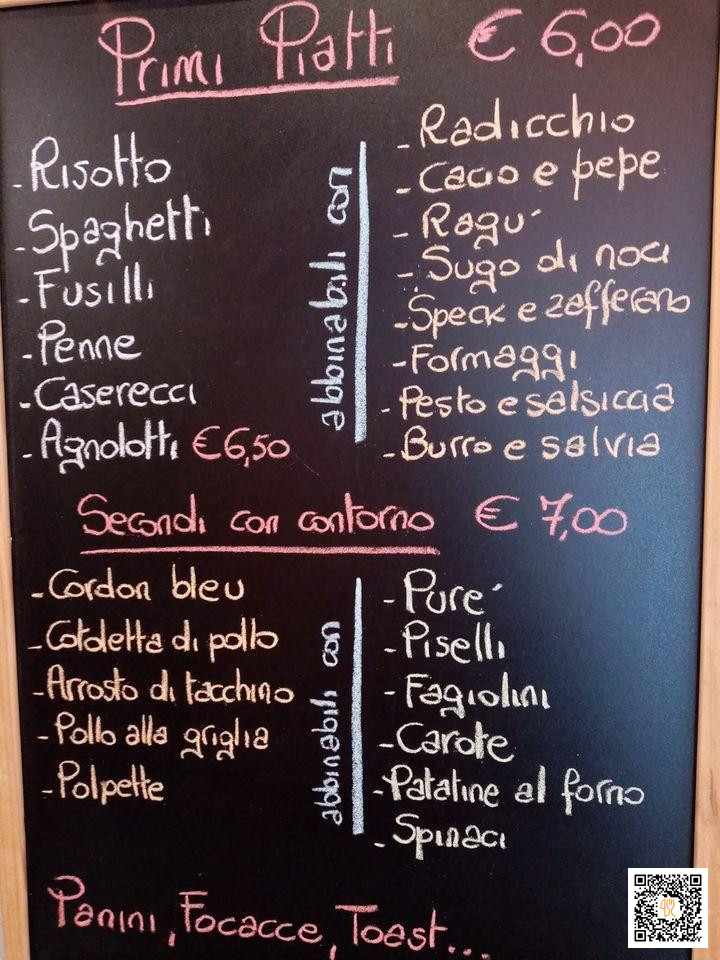 Primi Piatti € 6,00
- Risotto
- Spaghetti
- Fusilli
- Penne
- Caserecci
- Agnolotti €6,50
abbinabili con
- Radicchio
- Cacio e pepe
- Ragu´
- Sugo di noci
- Speck e zafferano
- Formaggi
- Pesto e salsiccia
- Burro e salvia
Secondi con contorno € 7,00
- Cordon bleu
- Cotoletta di pollo
- Arrosto di tacchino
- Pollo alla griglia
- Polpette
abbinabili con
- Pure´
- Piselli
- Fagiolini
- Carote
- Patatine al forno
- Spinaci
Panini, Focacce, Toast...